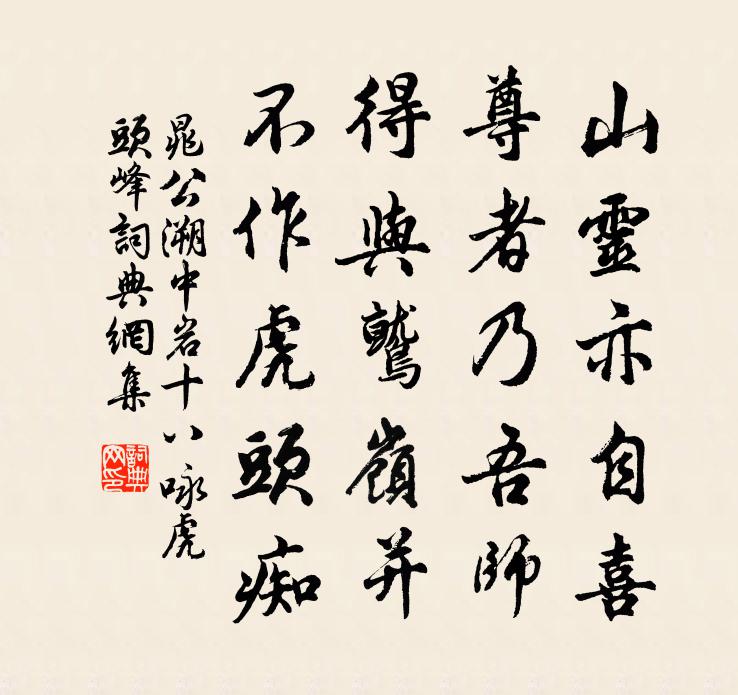 山靈亦自喜
尊者乃吾師
得與鷲嶺并
不作虎頭痴
晁公溯中岩十八咏虎
頭峰詞典網集
詞典網印